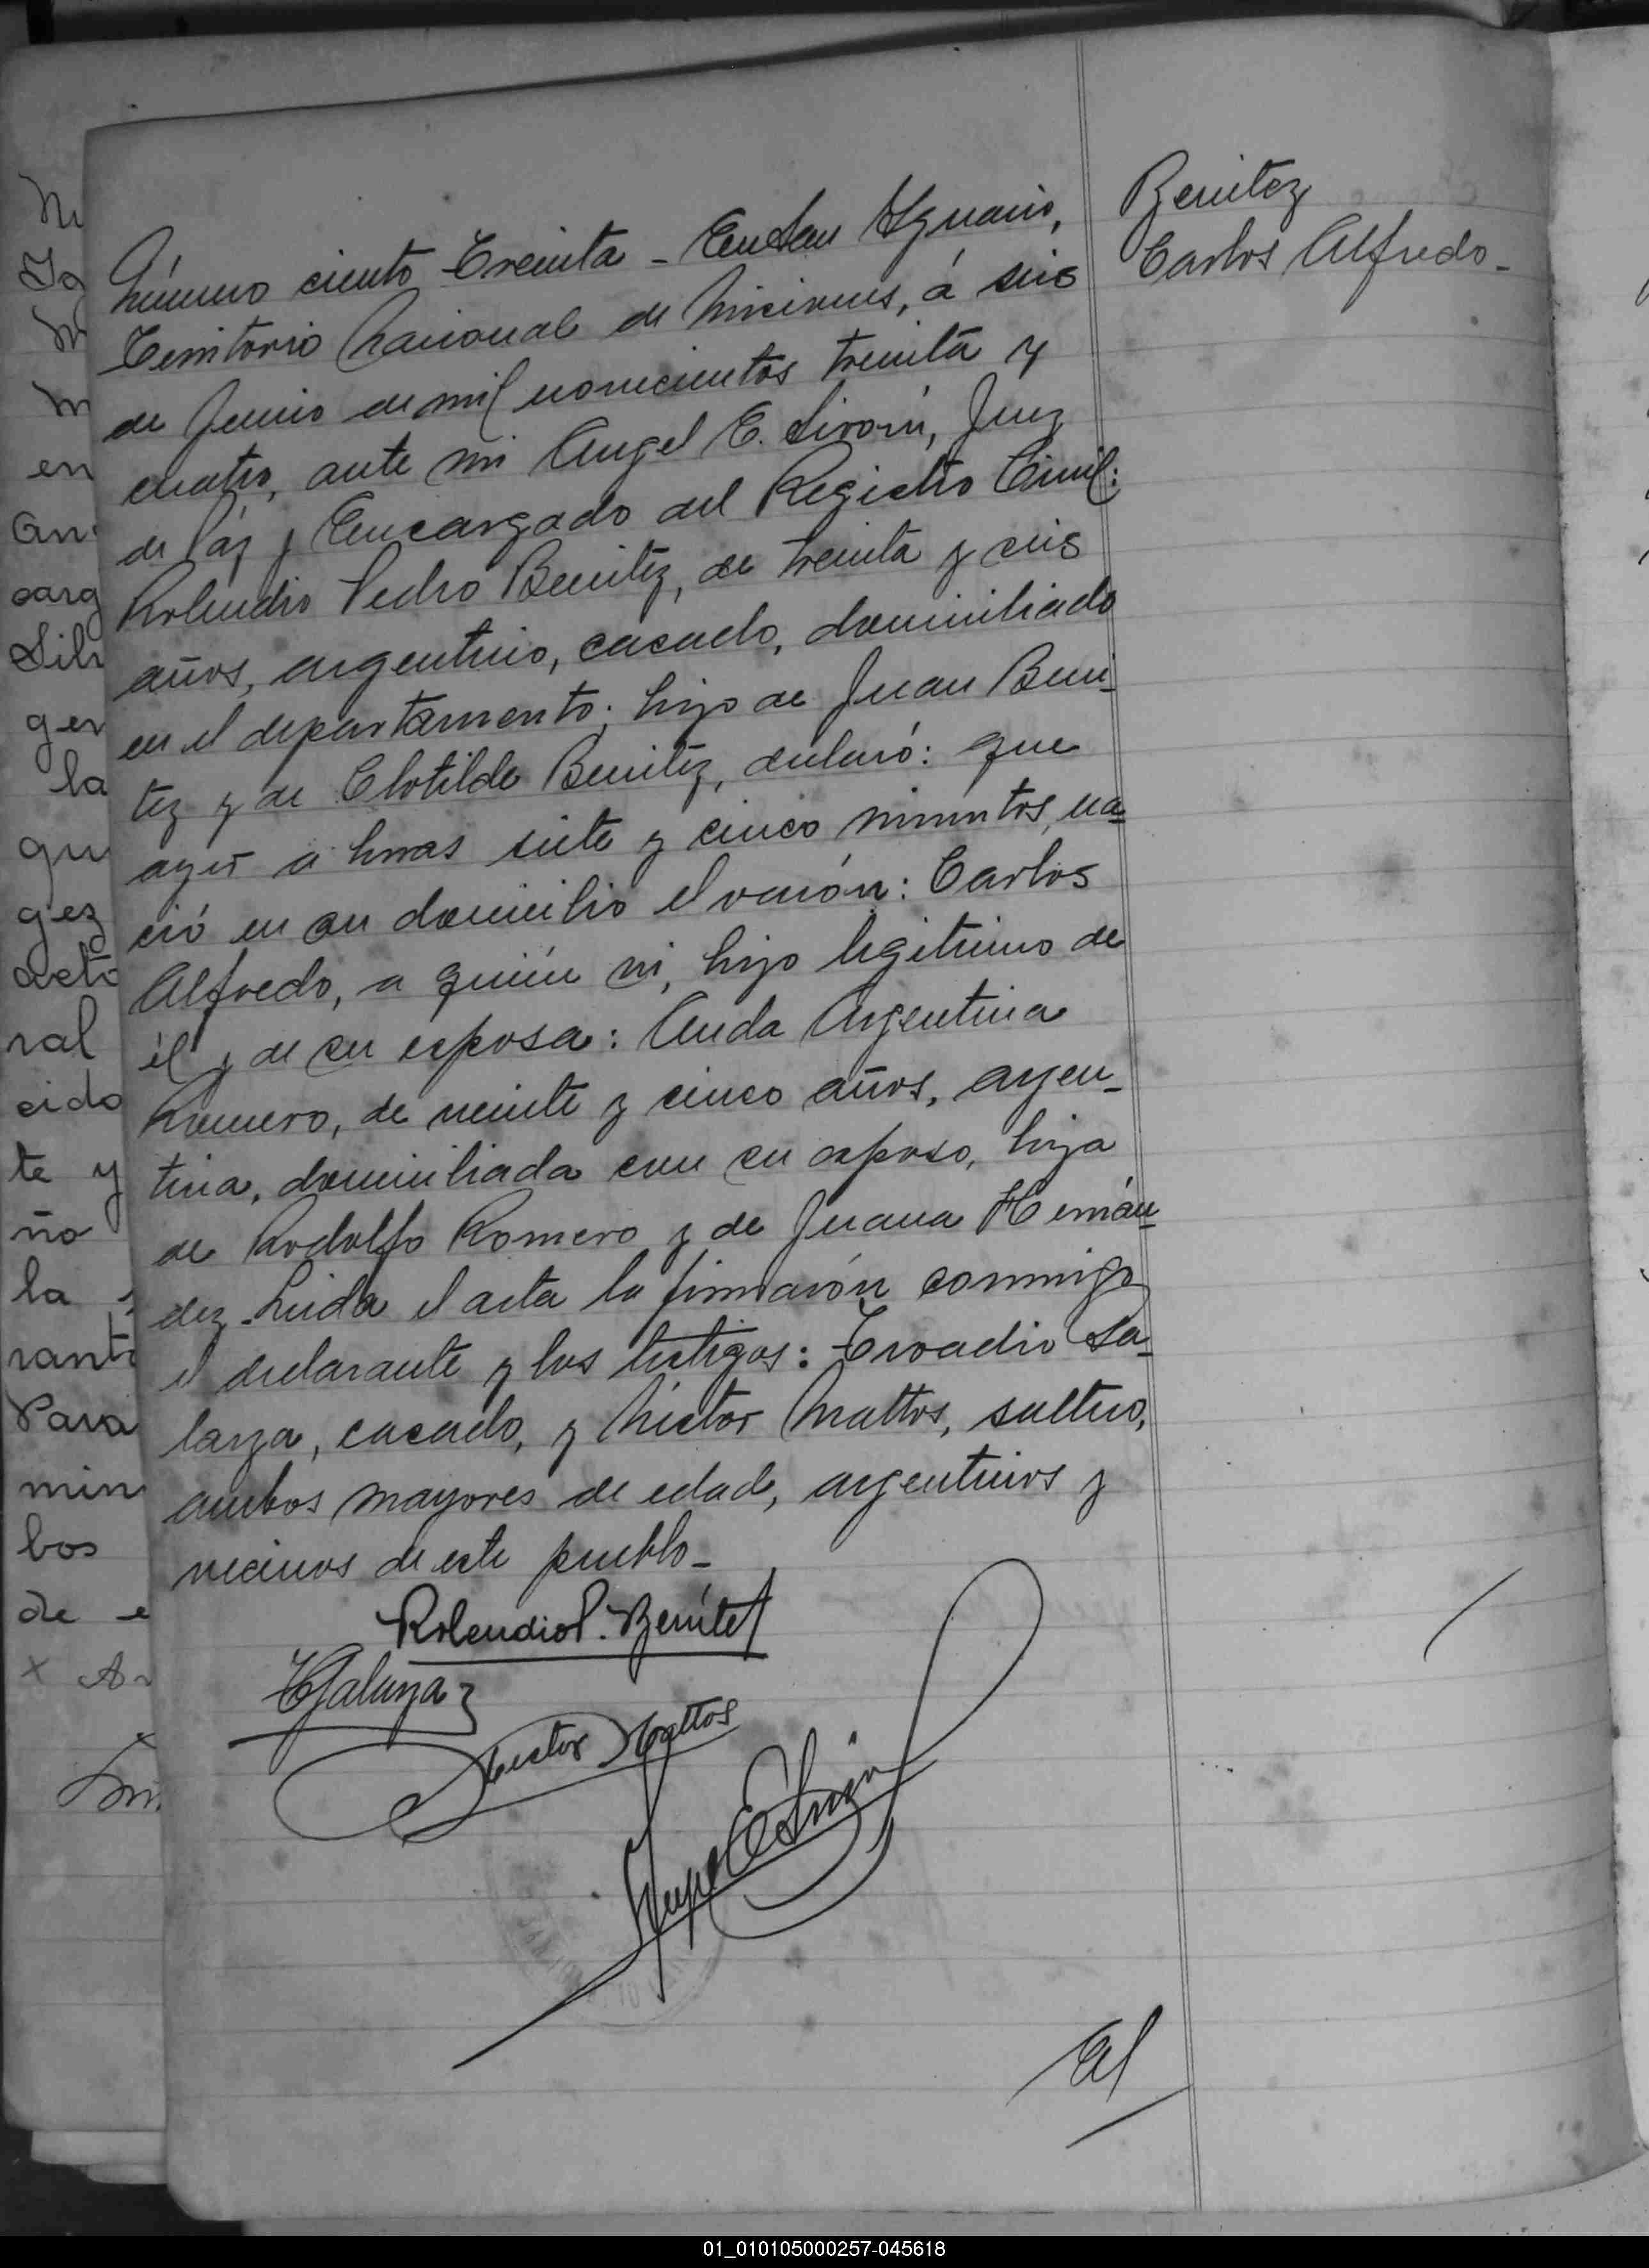 Benitez
Carlos Alfredo-
Número ciento Treinta - En San Ygnacio,
Territorio Nacional de Misiones, á seis
de Junio de mil novecientos treinta y
cuatro, ante mi Angel E. Sirom, Juez
de Páz y Encargado del Registro Civil:
Rolendio Pedro Benitez, de treinta y seis
años, argentino, casado, domiciliado
en el departamento; hijo de Juan Beni-
tez y de Clotilde Benitez, declaró: que
ayer a horas siete y cinco minutos, na-
ció en su domicilio el varón: Carlos
Alfredo, a quién ví, hijo legitimo de
él y de su esposa: Anda Argentina
Romero, de veinte y cinco años, argen-
tina, domiciliada con su esposo, hija
de Rodolfo Romero y de Juana Hernán-
dez. Leida el acta la firmarón conmigo
el declarante y los testigos: Troadio Ga-
larza, casado, y Héctor Mattos, soltero,
ambos mayores de edad, argentinos y
vecinos de este pueblo-
Rolendio P. Benítez
TGalarza
Hector Mattos
El
01_010105000257-045618